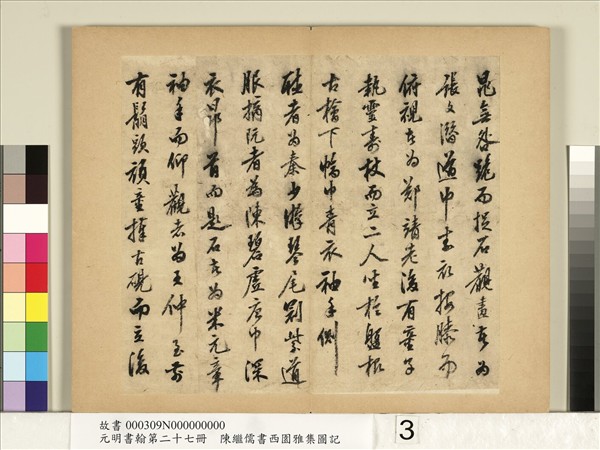 晁無咎跪而捉石觀畫者為
張文潛道巾素衣按膝而
俯視者為鄭靖老後有童子
執靈壽杖而立二人坐於盤根
古檜下幅巾青衣袖手側
聽者為秦少游琴尾冠紫道
服摘阮者為陳碧虛唐巾深
衣昂首而題石者為米元章
袖手而仰觀者為王仲至前
有鬅頭頑童捧古硯而立後
故書 000309N000000000
元明書翰第二十七冊 陳繼儒書西園雅集圖記
3